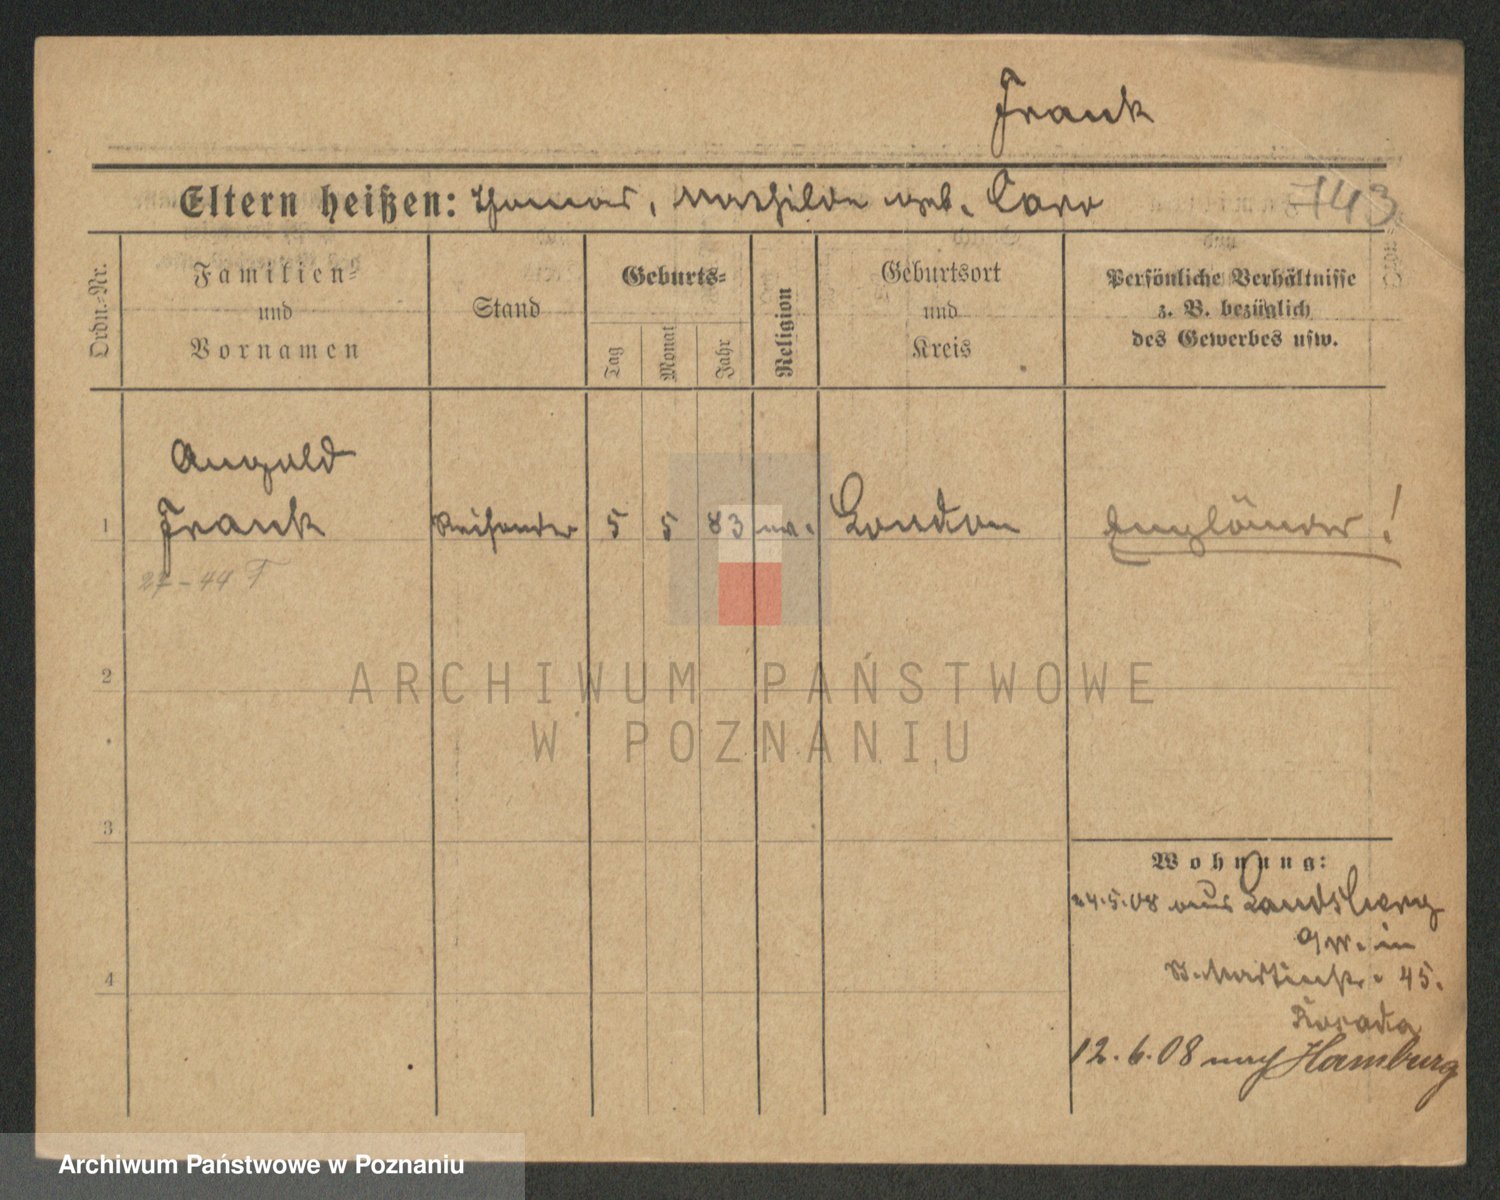 Frank
Eltern heißen: Thomas, Mathilde geb. Caro
743
Ordn.-Nr.
Familien-
und
Vornamen
Stand
Geburts-
Tag
Monat
Jahr
Religion
Geburtsort
und
Kreis
Persönliche Verhältnisse
z. B. bezüglich
des Gewerbes usw.
Angold
1 Frank Reisender 5 5 83 ev. London Engländer!
27-44 F
2
3
4
ARCHIWUM PAŃSTWOWE
W POZNANIU
Wohnung:
24.5.08 aus Landsberg
a/W. in
St. Martinstr. 45.
12.6.08 nach Hamburg
Archiwum Państwowe w Poznaniu